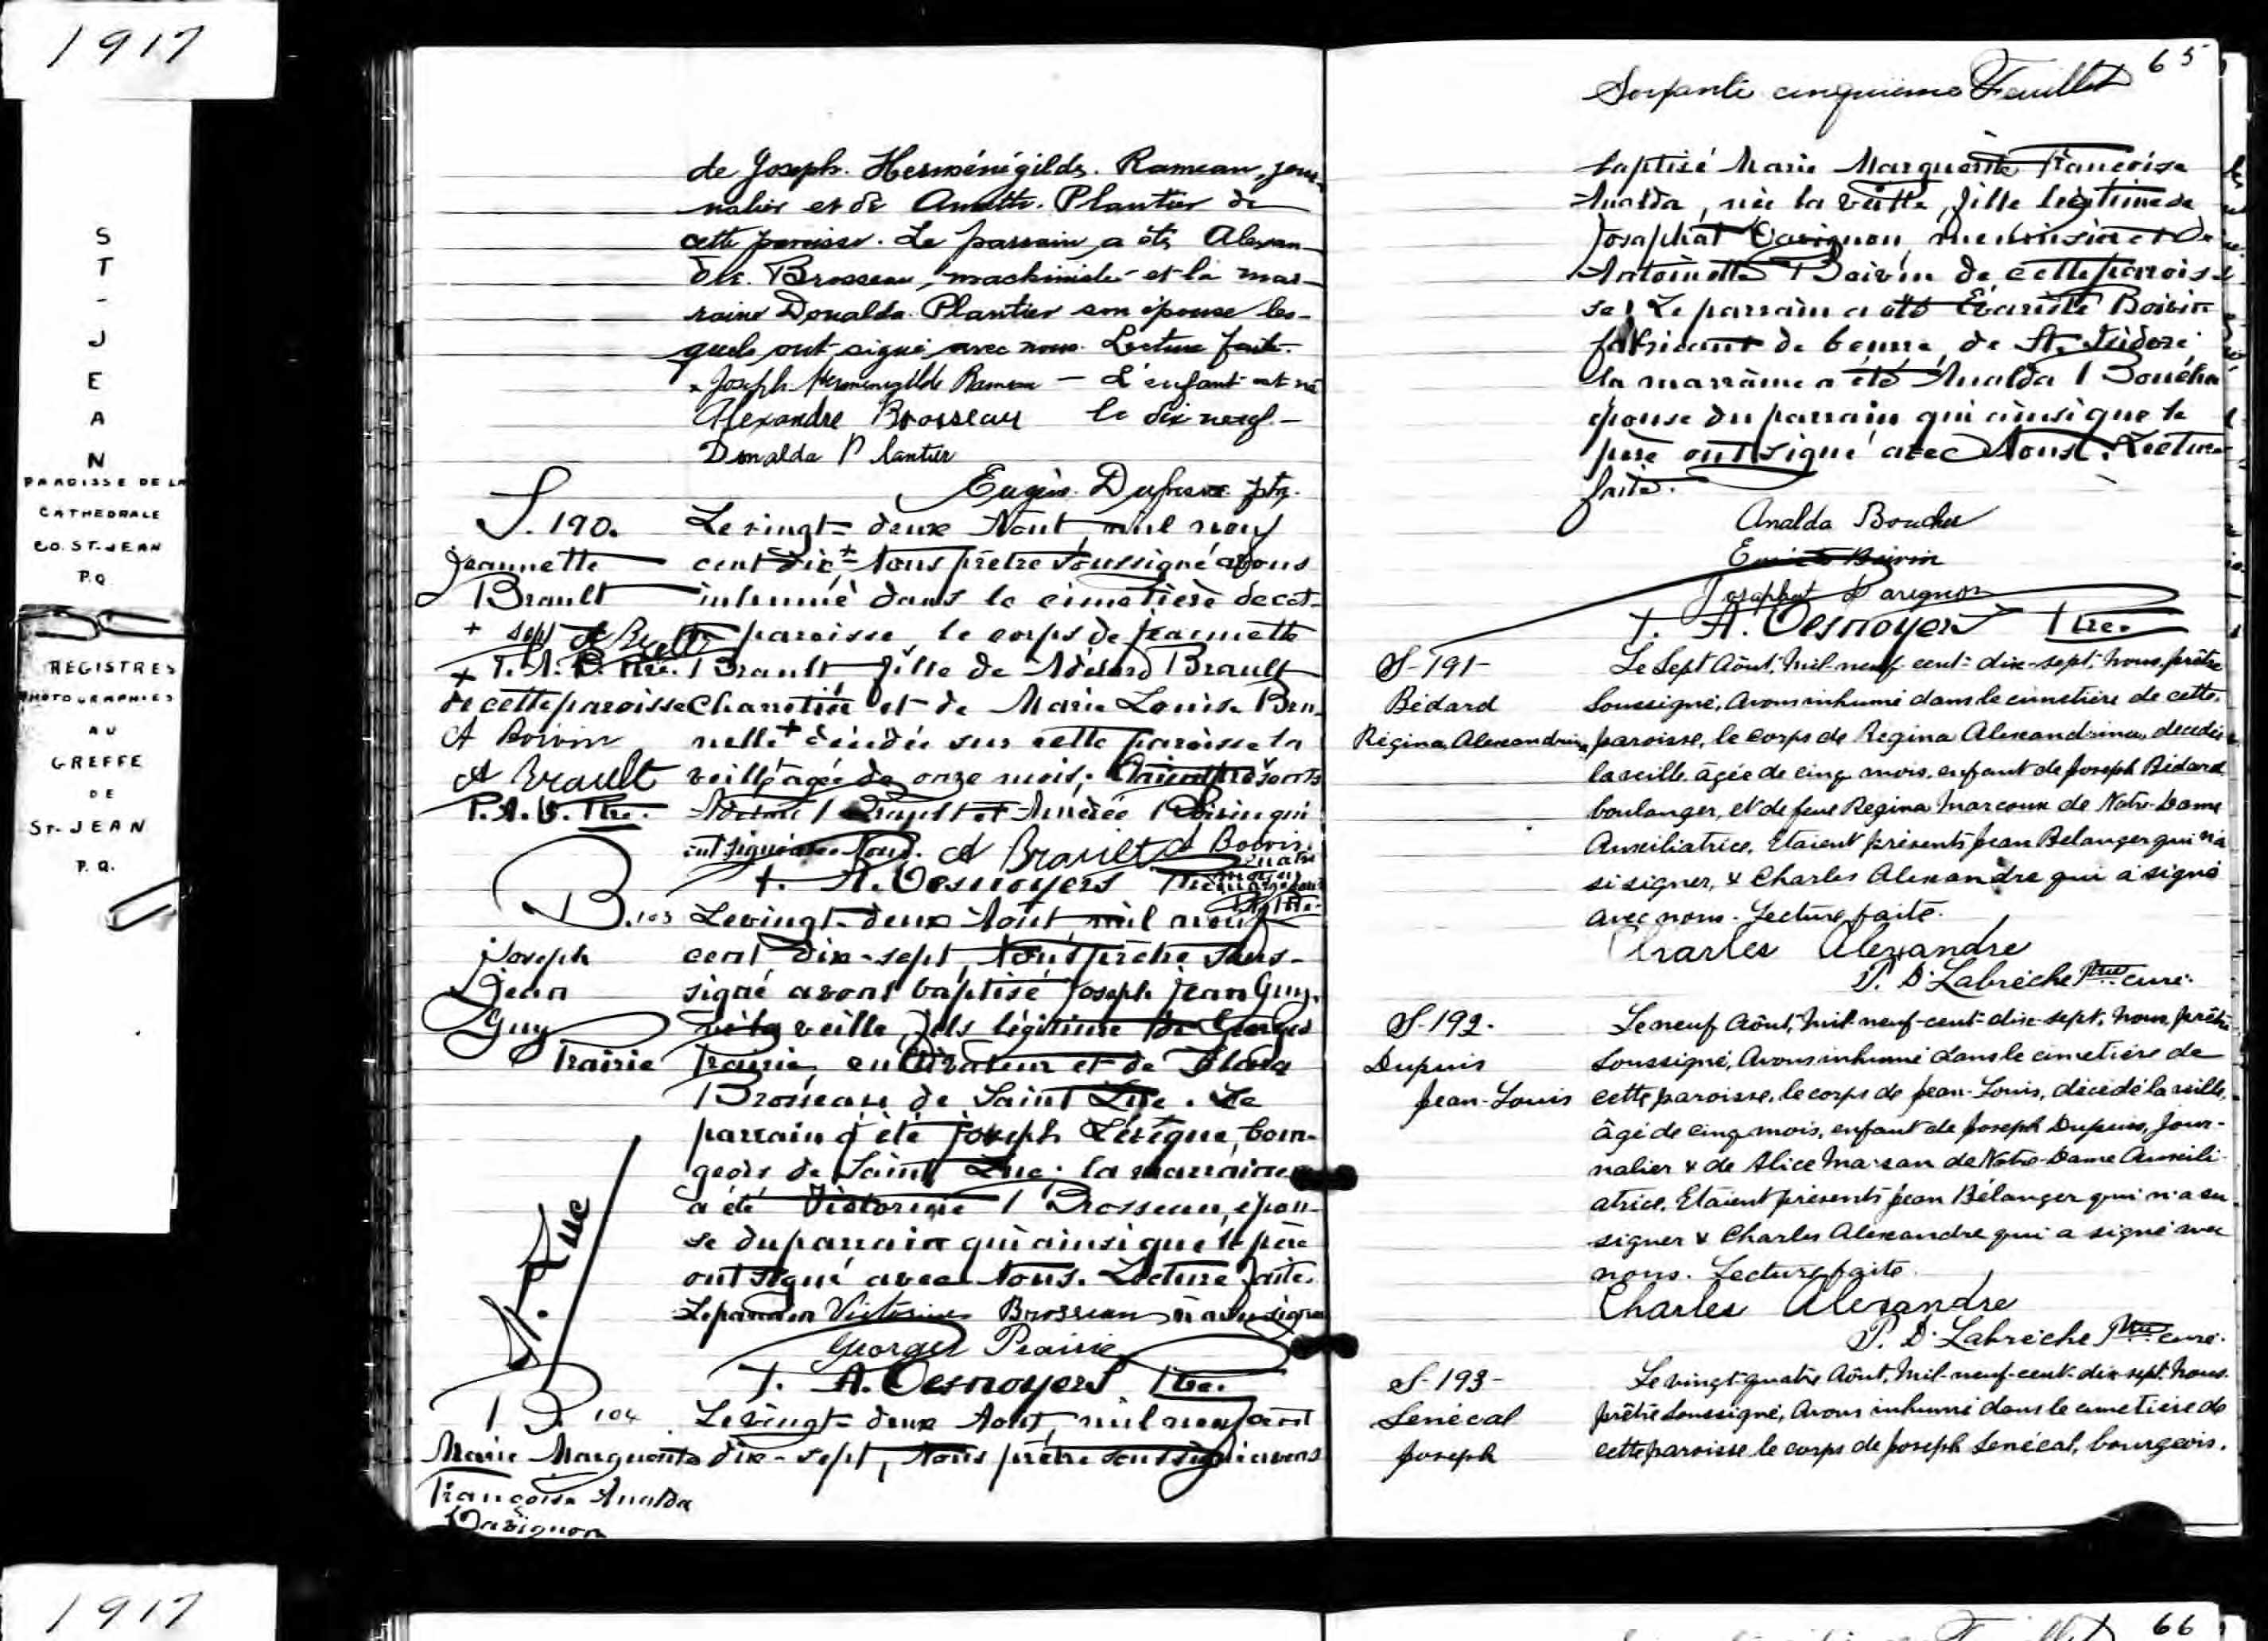 1917
ST-JEAN
PAROISSE DE LA
CATHEDRALE
CO. ST-JEAN
P.Q.
REGISTRES
PHOTOGRAPHIES
AU
GREFFE
DE
ST-JEAN
P.Q.
1917
de Joseph Herménégilde Rameau, jour-
nalier et de Annette Plantier de
cette paroisse. Le parrain a été Alexan-
dre Brosseau, machiniste et la mar-
raine Donalda Plantier son épouse les-
quels ont signé avec nous. Lecture faite.
Joseph Hermenegilde Rameau — L'enfant est né
Alexandre Brosseau le dix neuf.—
Donalda Plantier
Eugène Dufresne ptre.
S. 190.
Jeannette
Brault
+ sept A Brault
+ T. A. D. Ptre.
de cette paroisse
A Boivin
A Brault
T. A. D. Ptre.
Le vingt-deux Août, mil neuf
cent dix + Nous prêtre soussigné avons
inhumé dans le cimetière de cet-
te paroisse, le corps de Jeannette
Brault fille de Adélard Brault
Charretier et de Marie Louise Bru-
nelle + décédée sur cette paroisse la
veille âgée de onze mois; Étaient présents
Adélard Brault et Amédée Boivin qui
ont signé avec Nous. A Brault A Boivin
T. A. Desnoyers Ptre
B. 103
Joseph
Jean
Guy
Prairie
St. Luc
Le vingt-deux Août, mil neuf
cent dix-sept, Nous prêtre sous-
signé avons baptisé Joseph Jean Guy,
né la veille, fils légitime de Georges
Prairie, cultivateur et de Flora
Brosseau, de Saint Luc. Le
parrain a été Joseph Lévêque, bour-
geois de Saint Luc; la marraine
a été Victorine Brosseau, épou-
se du parrain qui ainsi que le père
ont signé avec Nous. Lecture faite.
Le parrain Victorine Brosseau n'a su signer
Georges Prairie
T. A. Desnoyers Ptre.
B. 104
Marie Marguerite
Françoise Analda
Davignon
Le vingt-deux Août, mil neuf cent
dix-sept, Nous prêtre soussigné avons
65
Soixante cinquième Feuillet
baptisé Marie Marguerite Françoise
Analda, née la veille, fille légitime de
Josaphat Davignon, menuisier et de
Antoinette Boivin de cette parois-
se! Le parrain a été Évariste Boivin
fabricant de beurre, de St. Isidore
la marraine a été Analda Boucher
épouse du parrain qui ainsi que le
père ont signé avec Nous. Lecture
faite.
Analda Boucher
Evariste Boivin
Josaphat Davignon
T. A. Desnoyers Ptre.
S-191-
Bédard
Régina Alexandrina
Le Sept Août, Mil-neuf cent-dix-sept, Nous, prêtre
Soussigné, Avons inhumé dans le cimetière de cette
paroisse, le corps de Regina Alexandrina, décédée
la veille âgée de cinq mois, enfant de Joseph Bédard
boulanger, et de feue Regina Marcoux de Notre-Dame
Auxiliatrice. Etaient présents Jean Belanger qui n'a
si signer, & Charles Alexandre qui a signé
avec nous. Lecture faite.
Charles Alexandre
P. D. Labrèche Ptre curé.
S-192.
Dupuis
Jean-Louis
Le neuf Août, Mil-neuf-cent-dix-sept, Nous, prêtre
Soussigné, Avons inhumé dans le cimetière de
cette paroisse, le corps de Jean-Louis, décédé la veille,
âgé de cinq mois, enfant de Joseph Dupuis, Jour-
nalier & de Alice de Notre-Dame Auxili-
atrice. Etaient présents Jean Bélanger qui n'a su
signer & Charles Alexandre qui a signé avec
nous. Lecture faite.
Charles Alexandre
P. D. Labrèche Ptre curé.
S-193-
Senécal
Joseph
Le vingt-quatre Août, Mil-neuf-cent-dix-sept, Nous
prêtre soussigné, Avons inhumé dans le cimetière de
cette paroisse le corps de Joseph Senécal, bourgeois.
66